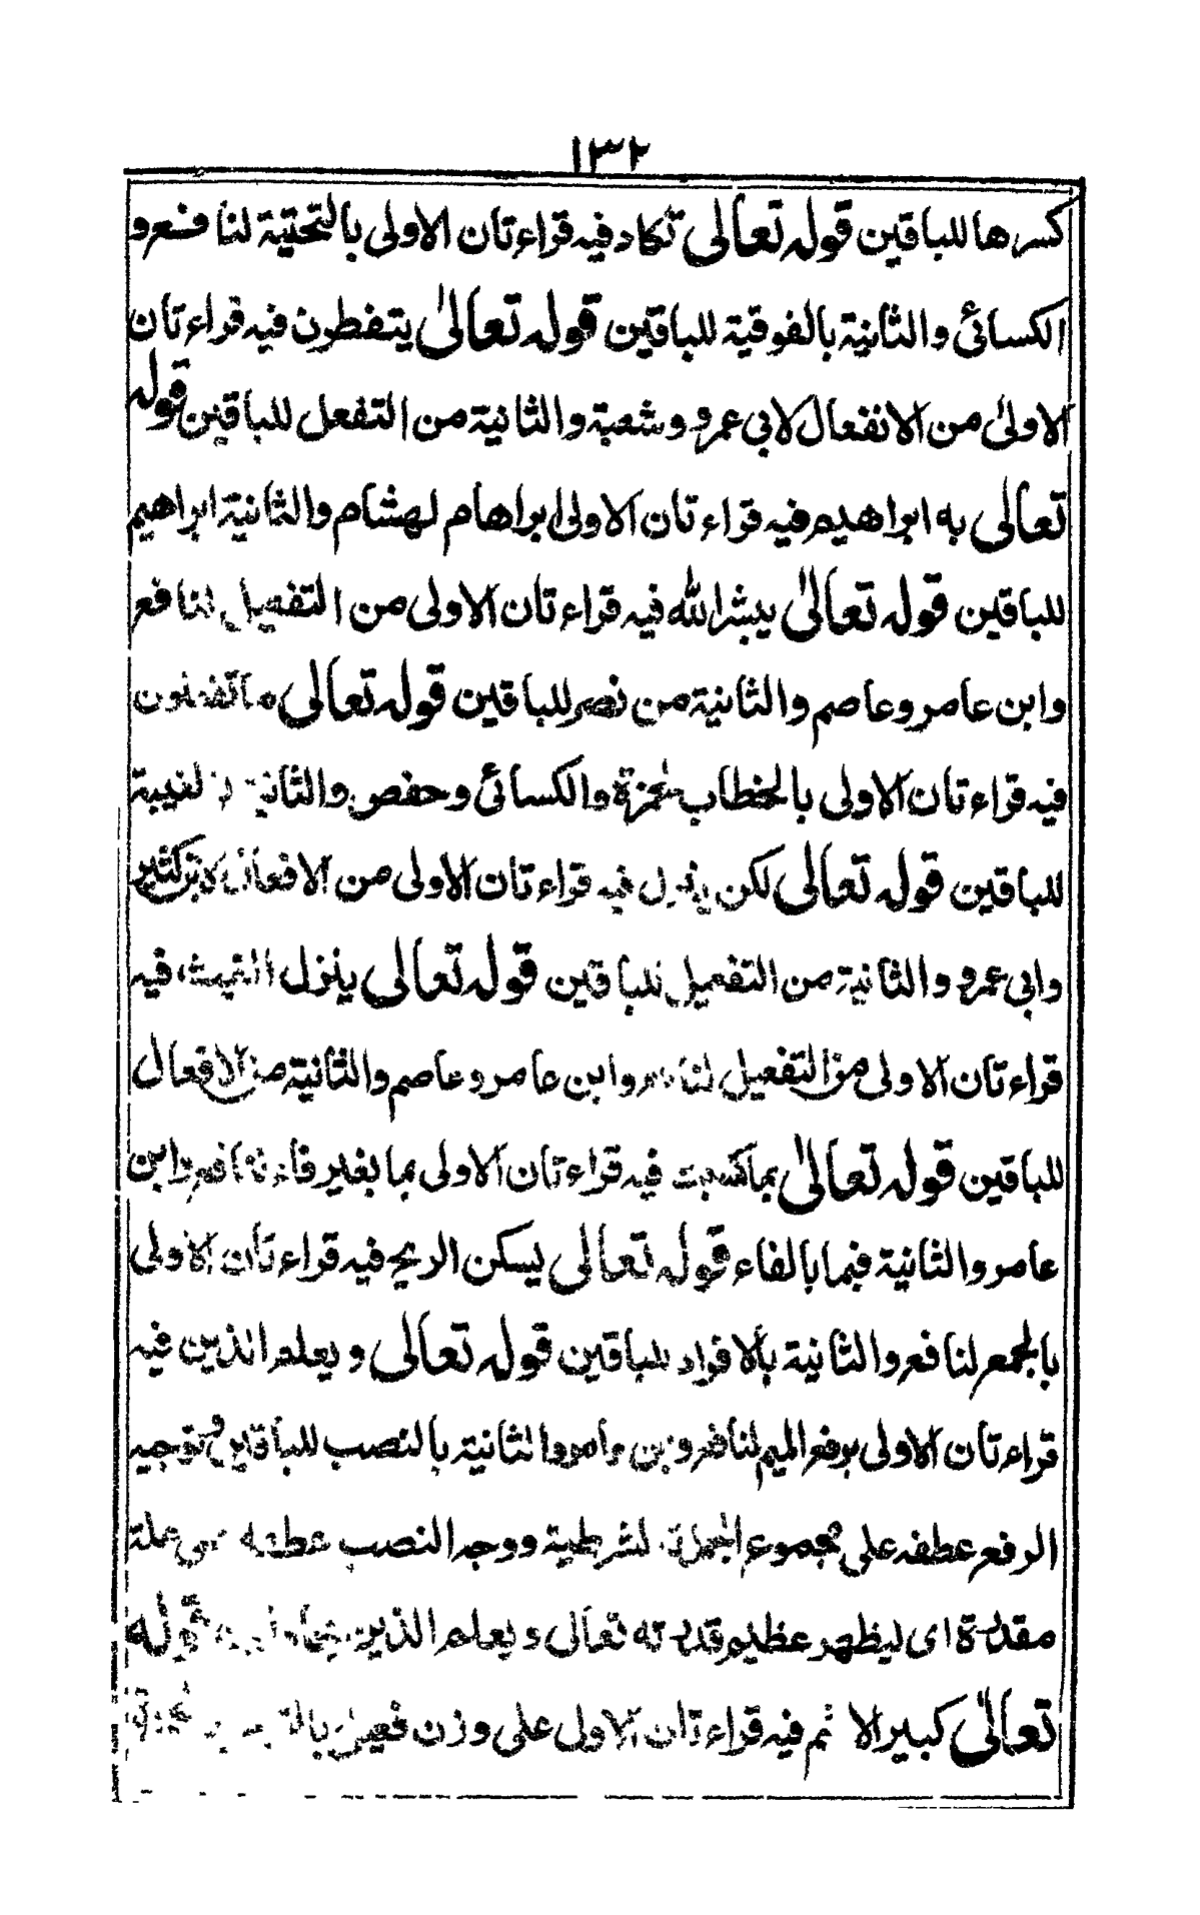 ١٣٢
كسرها للباقين قوله تعالى تكاد فيه قراءتان الاولى بالتحتية لنافع و
الكسائي والثانية بالفوقية للباقين قوله تعالىٰ يتفطرن فيه قراءتان
الاولىٰ من الانفعال لابي عمرو وشعبة والثانية من التفعل للباقين قوله
تعالى به ابراهيم فيه قراءتان الاولى ابراهام لهشام والثانية ابراهيم
للباقين قوله تعالىٰ يبشر الله فيه قراءتان الاولى من التفعيل لنافع
وابن عامر وعاصم والثانية من نصر للباقين قوله تعالى ما تفعلون
فيه قراءتان الاولى بالخطاب لحمزة والكسائي وحفص والثانية بالغيبة
للباقين قوله تعالى لكن ينزل فيه قراءتان الاولى من الافعال لابن كثير
وابي عمرو والثانية من التفعيل للباقين قوله تعالى ينزل الغيث فيه
قراءتان الاولى من التفعيل لنافع وابن عامر وعاصم والثانية من الافعال
للباقين قوله تعالىٰ بما كسبت فيه قراءتان الاولى بما بغير فاء لنافع وابن
عامر والثانية فبما بالفاء قوله تعالى يسكن الريح فيه قراءتان الاولى
بالجمع لنافع والثانية بالافراد للباقين قوله تعالى ويعلم الذين فيه
قراءتان الاولى برفع الميم لنافع وابن عامر والثانية بالنصب للباقين وتوجيه
الرفع عطفه على مجموع الجملة الشرطية ووجه النصب عطفه على علة
مقدرة اى ليظهر عظيم قدرته تعالى ويعلم الذين قوله
تعالىٰ كبير الاثم فيه قراءتان الاولى على وزن فعيل